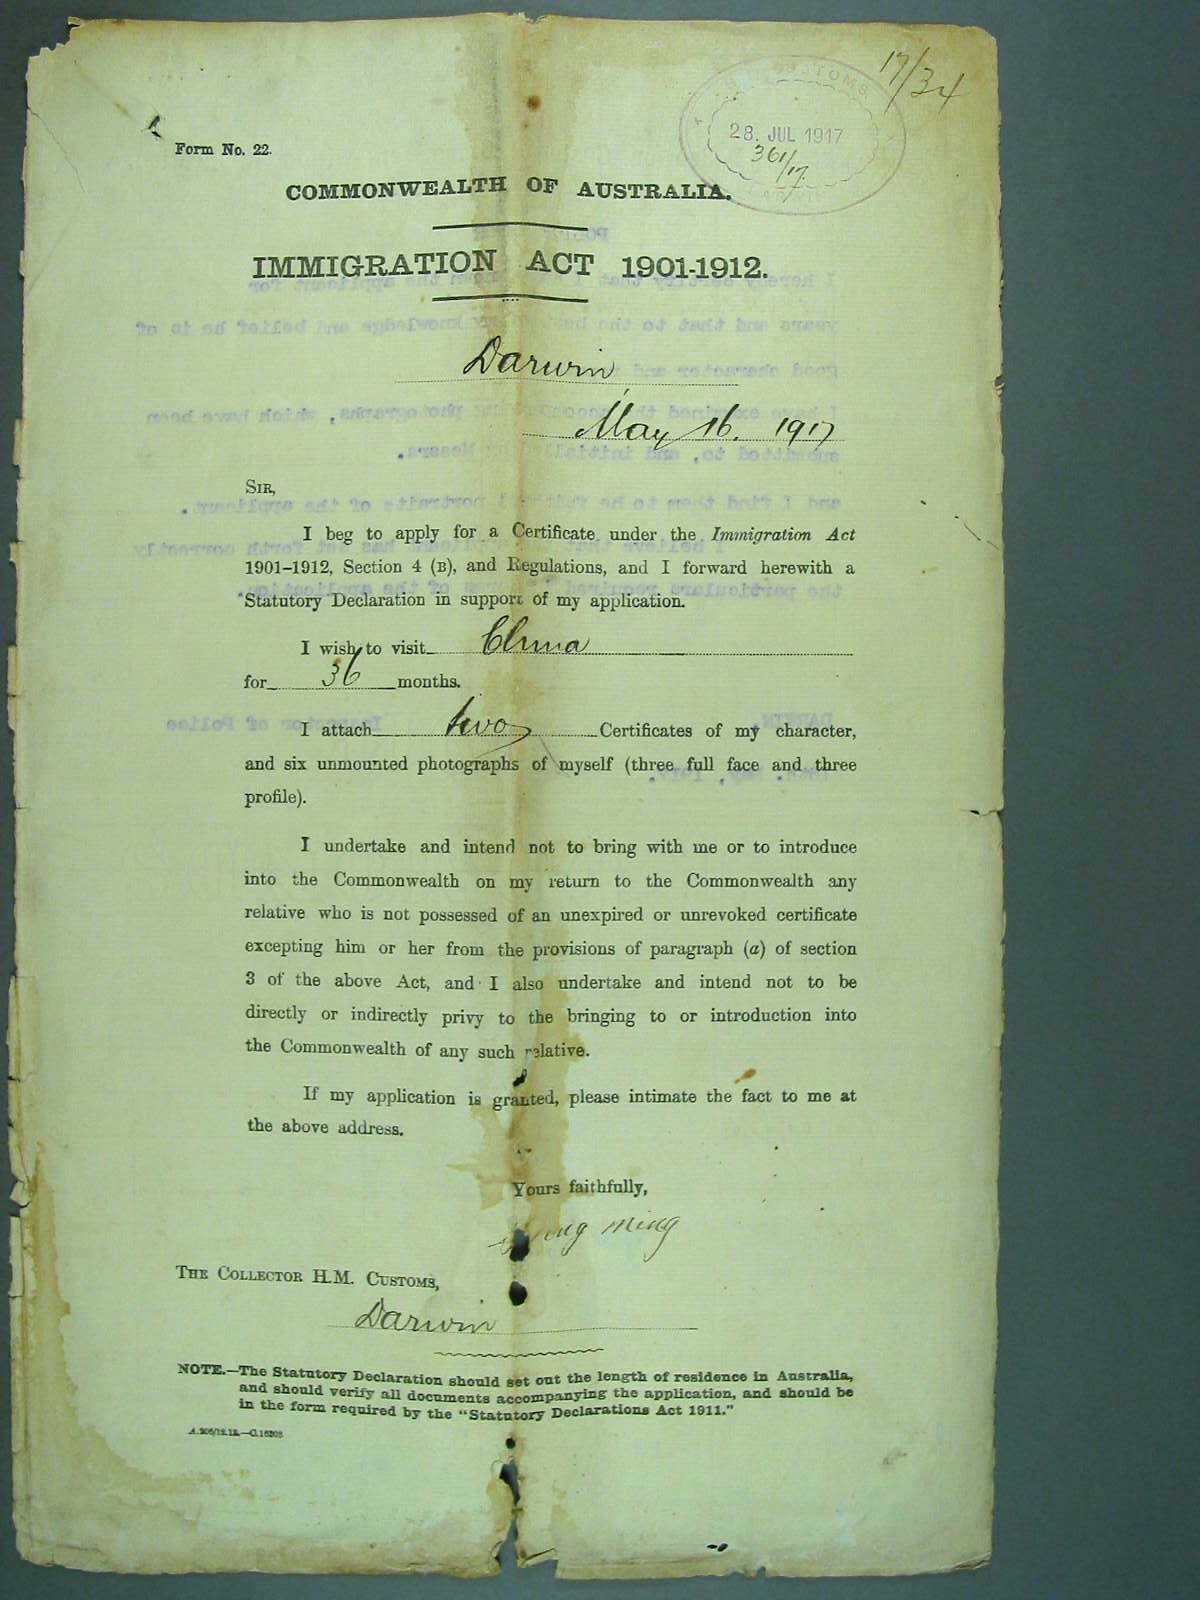 17/34
CUSTOMS
28. JUL 1917
361/17.
Form No. 22.
COMMONWEALTH OF AUSTRALIA.
IMMIGRATION ACT 1901-1912.
Darwin
May 16. 1917
SIR,
I beg to apply for a Certificate under the Immigration Act
1901–1912, Section 4 (B), and Regulations, and I forward herewith a
Statutory Declaration in support of my application.
I wish to visit China
for 36 months.
I attach two Certificates of my character,
and six unmounted photographs of myself (three full face and three
profile).
I undertake and intend not to bring with me or to introduce
into the Commonwealth on my return to the Commonwealth any
relative who is not possessed of an unexpired or unrevoked certificate
excepting him or her from the provisions of paragraph (a) of section
3 of the above Act, and I also undertake and intend not to be
directly or indirectly privy to the bringing to or introduction into
the Commonwealth of any such relative.
If my application is granted, please intimate the fact to me at
the above address.
Yours faithfully,
ming
THE COLLECTOR H.M. CUSTOMS,
Darwin
NOTE.—The Statutory Declaration should set out the length of residence in Australia,
and should verify all documents accompanying the application, and should be
in the form required by the "Statutory Declarations Act 1911."